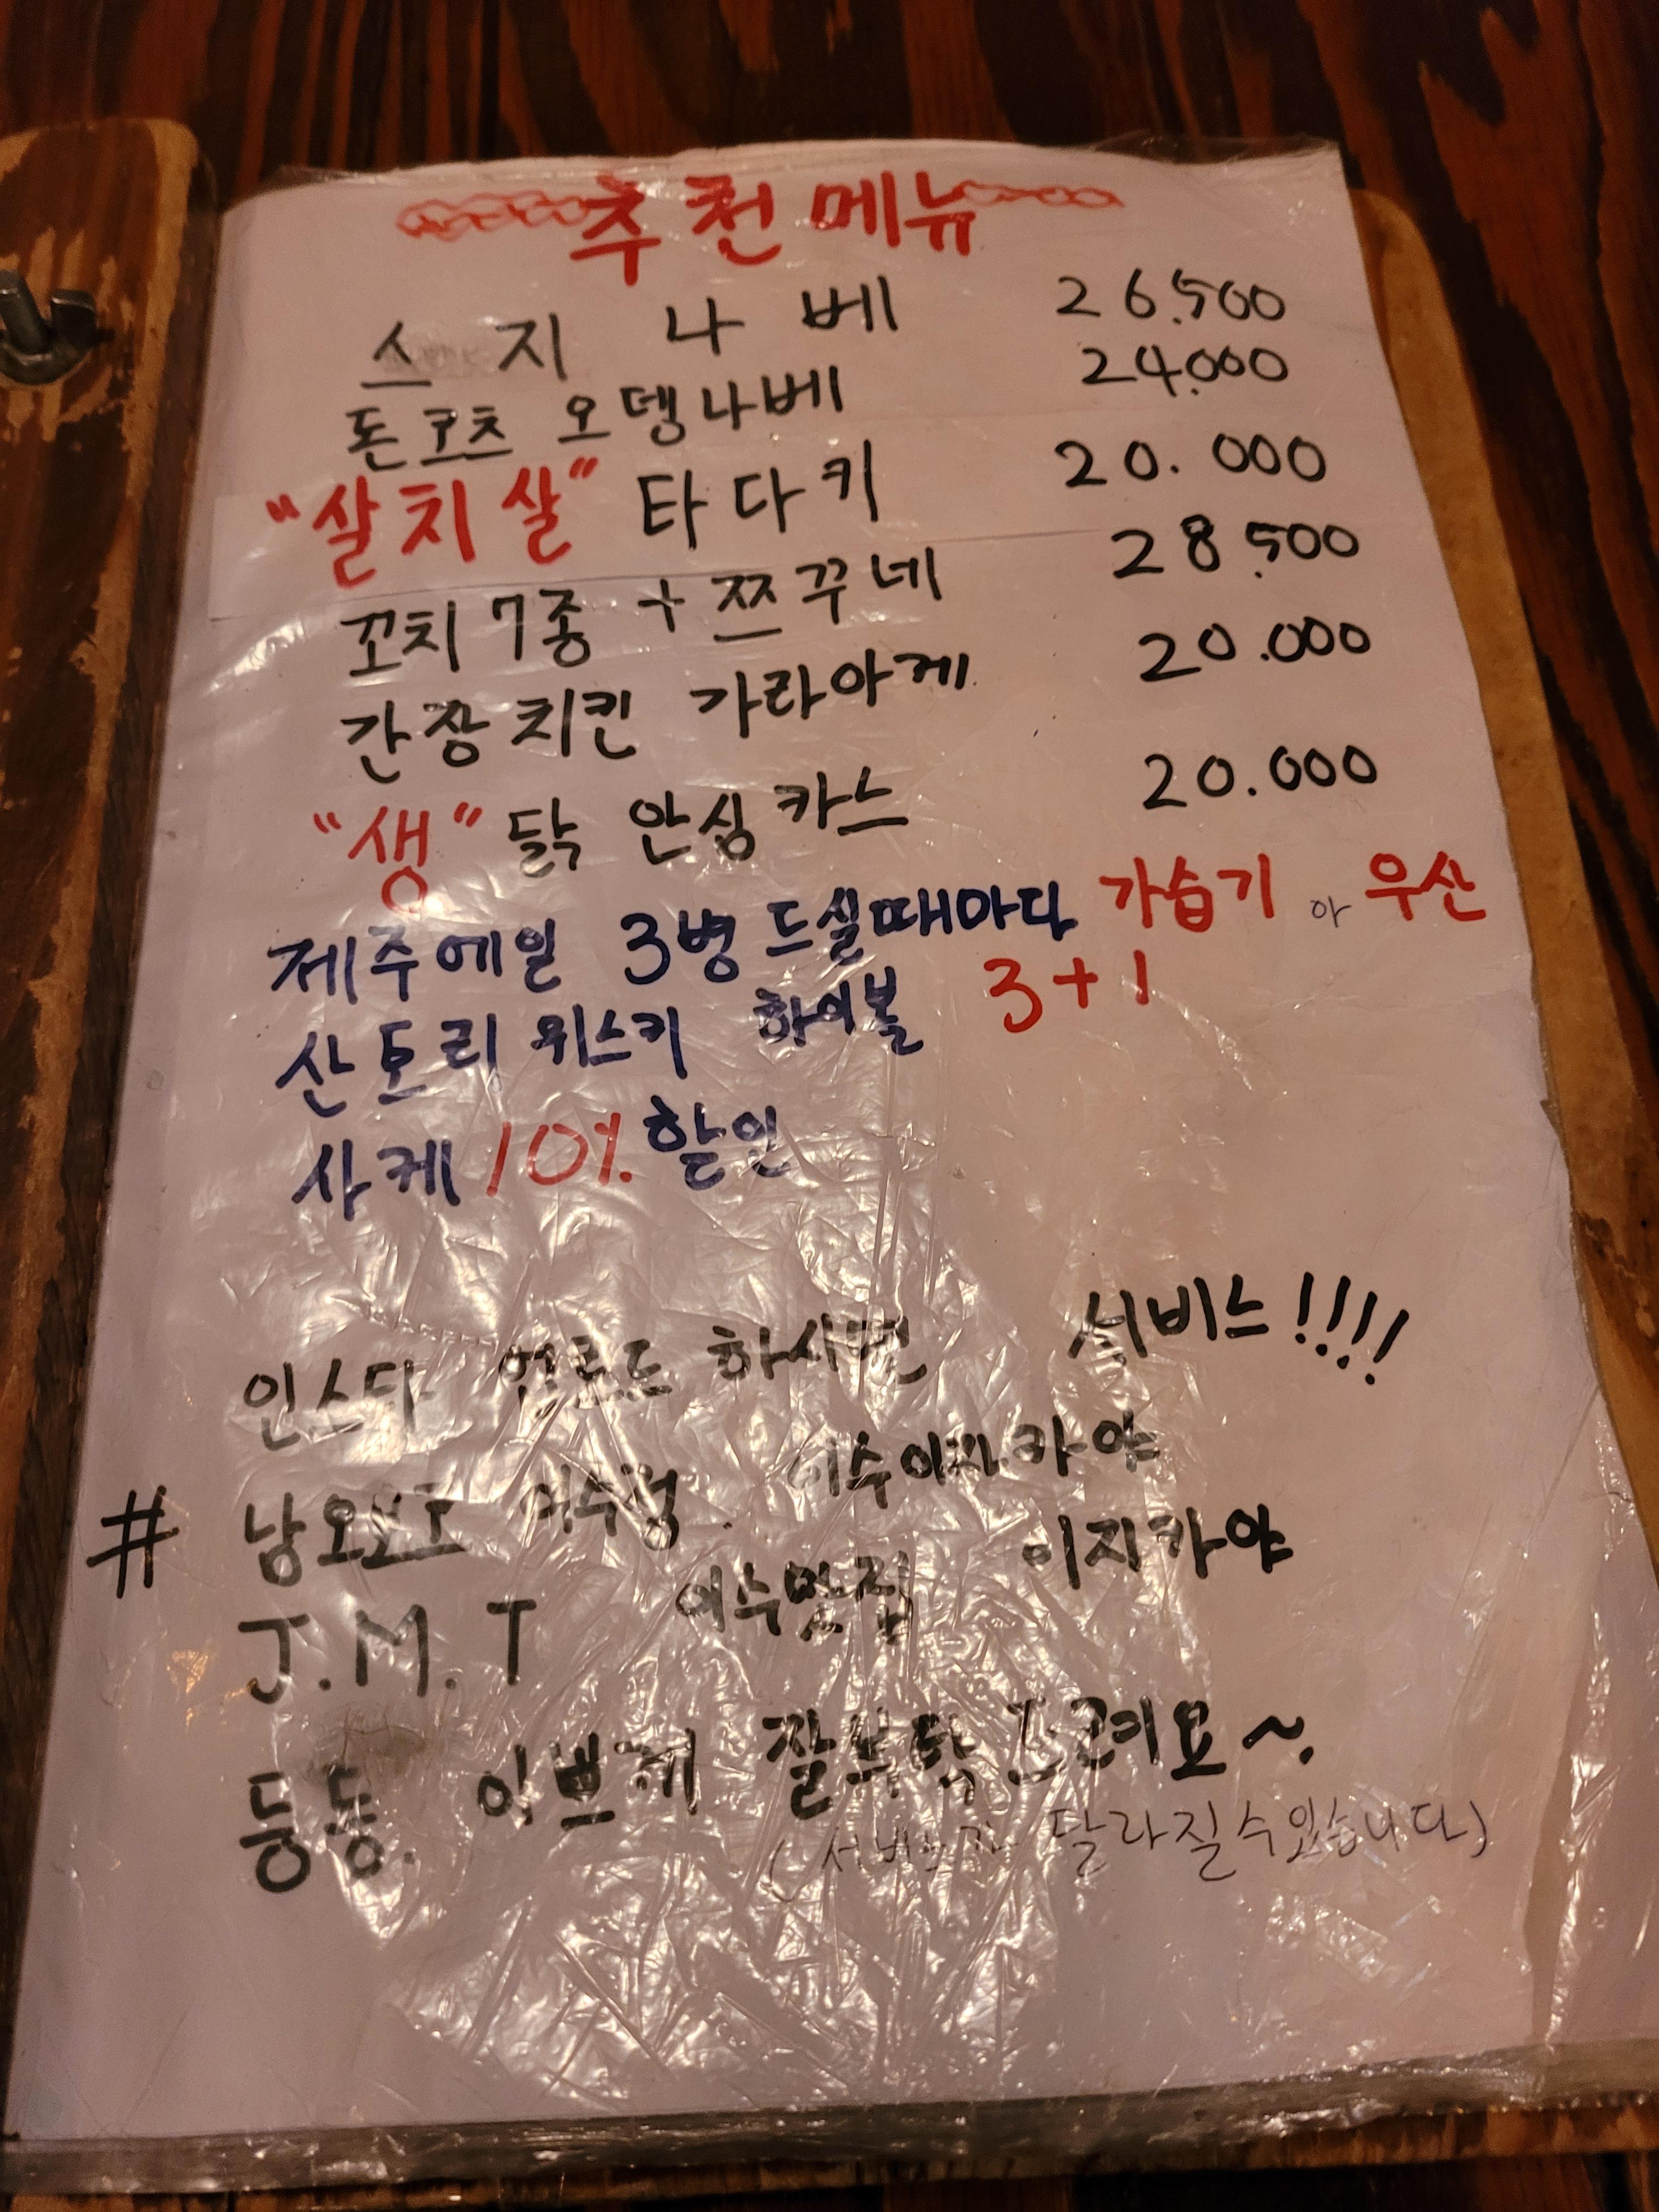 추천메뉴
스지나베 26.500
돈코츠 오뎅나베 24.000
"살치살" 타다키 20.000
꼬치 7종 + 쯔꾸네 28.500
간장치킨 가라아게 20.000
"생" 닭 안심카스 20.000
제주에일 3병 드실때마다 가습기 or 우산
산토리 위스키 하이볼 3+1
사케 10% 할인
인스타 업로드 하시면 서비스!!!!
# 남오토코 이수점. 이수이자카야
J.M.T 이수맛집 이자카야
등등. 이쁘게 잘부탁드려요~.
(서비스가 달라질수있습니다)